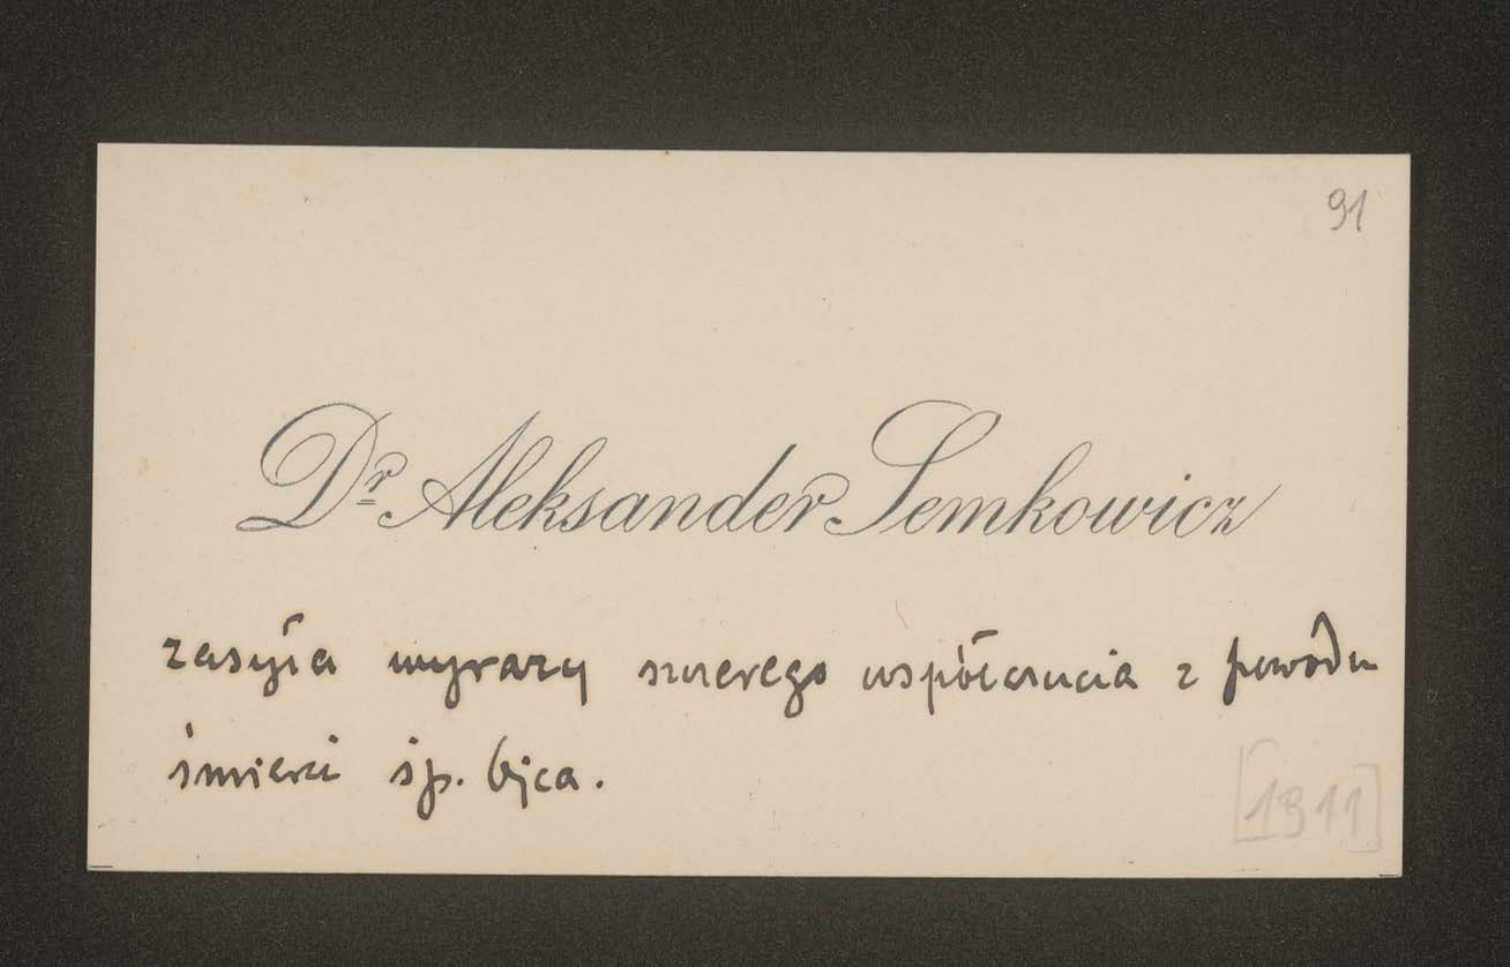 91
Dr. Aleksander Semkowicz
zasyła wyrazy szczerego współczucia z powodu
śmierci śp. Ojca.
[1911]